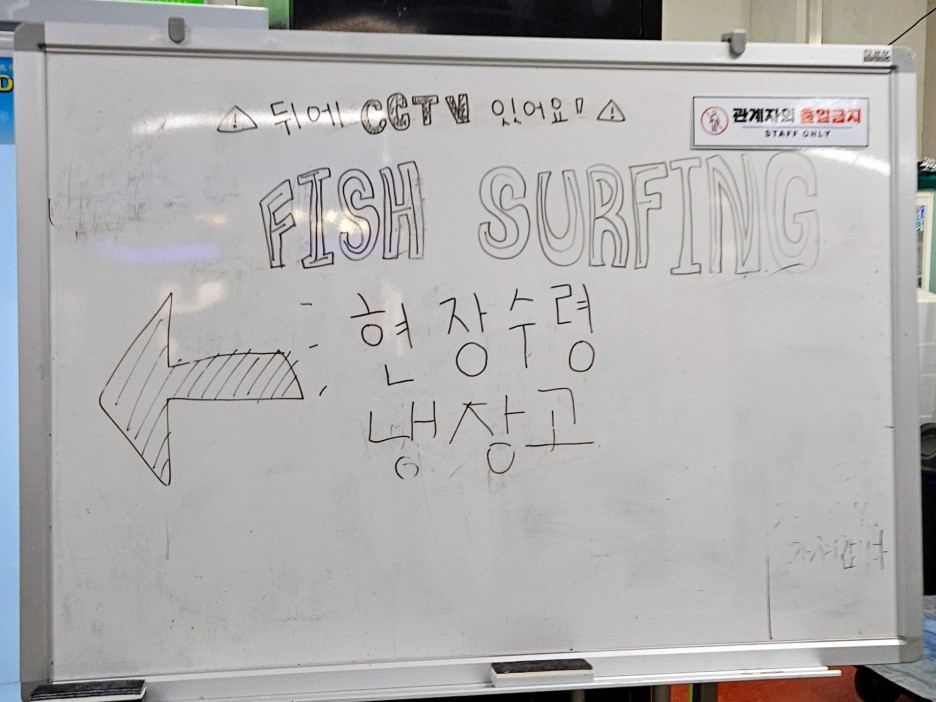 뒤에 CCTV 있어요!
관계자외 출입금지
STAFF ONLY
FISH SURFING
현장수령
냉장고